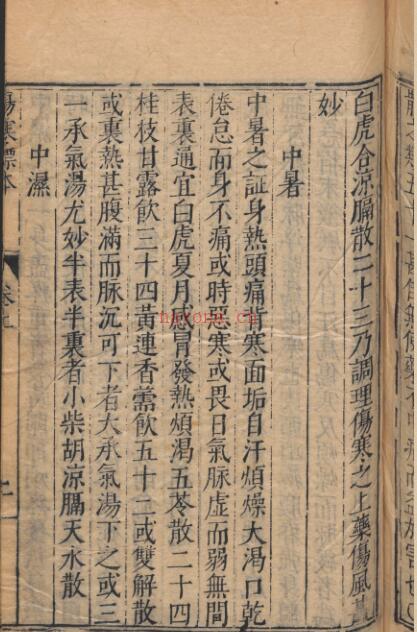 白虎合凉膈散二十三乃調理傷寒之上藥傷風甚
妙
中暑
中暑之証身熱頭痛背寒面垢自汗煩燥大渴口乾
倦怠而身不痛或時惡寒或畏日氣脉虛而弱無間
表裏通宜白虎夏月感冒發熱煩渴五苓散二十四
桂枝甘露飲三十四黃連香薷飲五十二或雙解散
或裏熱甚腹滿而脉沉可下者大承氣湯下之或三
一承氣湯尤妙半表半裏者小柴胡凉膈天水散
中濕
傷寒標本
卷上